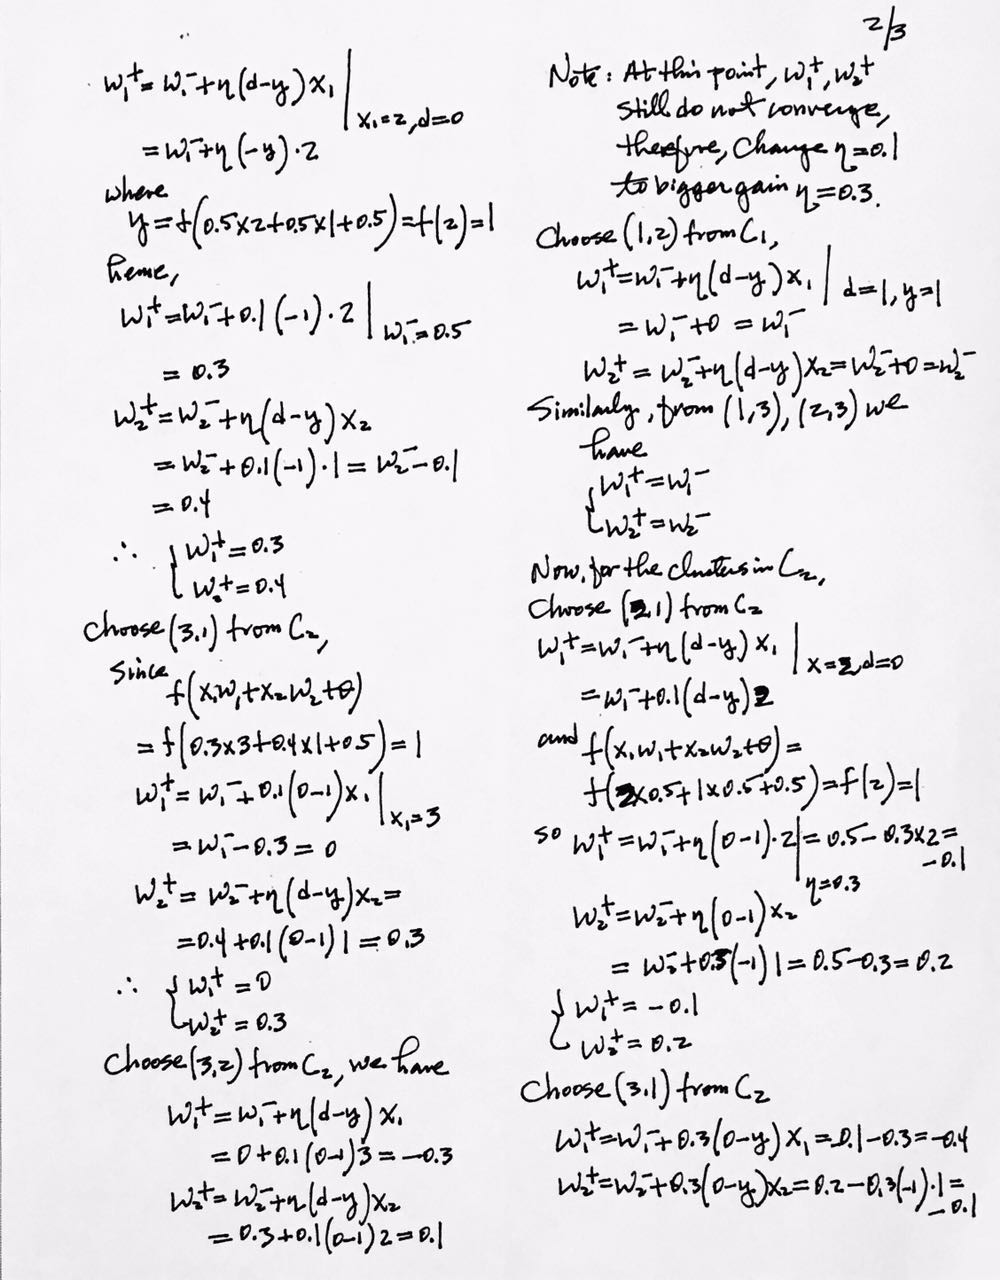 2/3
w₁⁺ = w₁⁻ + η(d-y)x₁ | x₁=2, d=0
= w₁⁻ + η(-y)·2
where
y = f(0.5x2+0.5x1+0.5) = f(2) = 1
hence,
w₁⁺ = w₁⁻ + 0.1(-1)·2 | w₁⁻=0.5
= 0.3
w₂⁺ = w₂⁻ + η(d-y)x₂
= w₂⁻ + 0.1(-1)·1 = w₂⁻ - 0.1
= 0.4
∴ { w₁⁺ = 0.3
w₂⁺ = 0.4
Choose (3,1) from C₂,
since
f(x₁w₁+x₂w₂+θ)
= f(0.3x3+0.4x1+0.5) = 1
w₁⁺ = w₁⁻ + 0.1(0-1)x₁ | x₁=3
= w₁⁻ - 0.3 = 0
w₂⁺ = w₂⁻ + η(d-y)x₂ =
= 0.4 + 0.1(0-1)1 = 0.3
∴ { w₁⁺ = 0
w₂⁺ = 0.3
Choose (3,2) from C₂, we have
w₁⁺ = w₁⁻ + η(d-y)x₁
= 0 + 0.1(0-1)3 = -0.3
w₂⁺ = w₂⁻ + η(d-y)x₂
= 0.3 + 0.1(0-1)2 = 0.1
Note: At this point, w₁⁺, w₂⁺
still do not converge,
therefore, Change η=0.1
to bigger gain η=0.3.
Choose (1,2) from C₁,
w₁⁺ = w₁⁻ + η(d-y)x₁ | d=1, y=1
= w₁⁻ + 0 = w₁⁻
w₂⁺ = w₂⁻ + η(d-y)x₂ = w₂⁻ + 0 = w₂⁻
Similarly, from (1,3), (2,3) we
have
{ w₁⁺ = w₁⁻
w₂⁺ = w₂⁻
Now, for the clusters in C₂,
Choose (2,1) from C₂
w₁⁺ = w₁⁻ + η(d-y)x₁ | x=2, d=0
= w₁⁻ + 0.1(d-y)2
and f(x₁w₁+x₂w₂+θ) =
f(2x0.5+1x0.5+0.5) = f(2) = 1
so w₁⁺ = w₁⁻ + η(0-1)·2 | η=0.3 = 0.5 - 0.3x2 =
-0.1
w₂⁺ = w₂⁻ + η(0-1)x₂
= w₂⁻ + 0.3(-1)1 = 0.5-0.3 = 0.2
{ w₁⁺ = -0.1
w₂⁺ = 0.2
Choose (3,1) from C₂
w₁⁺ = w₁⁻ + 0.3(0-y)x₁ = 0.1-0.3 = -0.4
w₂⁺ = w₂⁻ + 0.3(0-y)x₂ = 0.2-0.3(-1)·1 =
-0.1